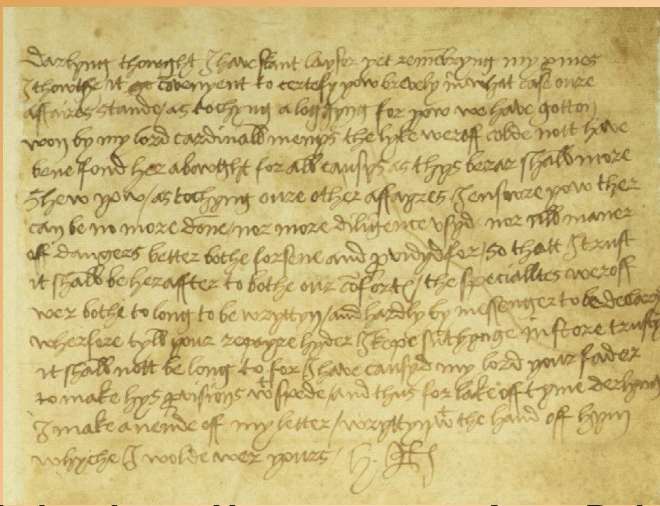 Darlyng thowght I have skant laysor yet remembryng my promes
I thowthe it co[n]venyent to certefy yow brevely in what case oure
affaires stande / as tochyng a loggyng for yow we have gotton
won by my lord cardinalls menys the lyke weroff colde nott have
bene fond her abowght for all causys as thys berar shall more
shew yow / as tochyng oure other affayres I ensure yow ther
can be no more done / nor more diligence usyd nor all maner
off dangers better bothe forsene and provydyd for / so thatt I trust
it shall be heraffter to bothe our co[m]forte / the specialltes weroff
wer bothe to long to be wryttyn / and hardly by messenger to be declaryd
wherfore tyll your repayre hyder I kepe sumthynge in store trustyng
it shall nott be long to for I have causyd my lord your fader
to make hys p[ro]visions wt spede / and thus for lake off tyme derlyng
I make a nende off my letter / wryttyn wt the hand off hym
whyche I wolde wer yours H. R